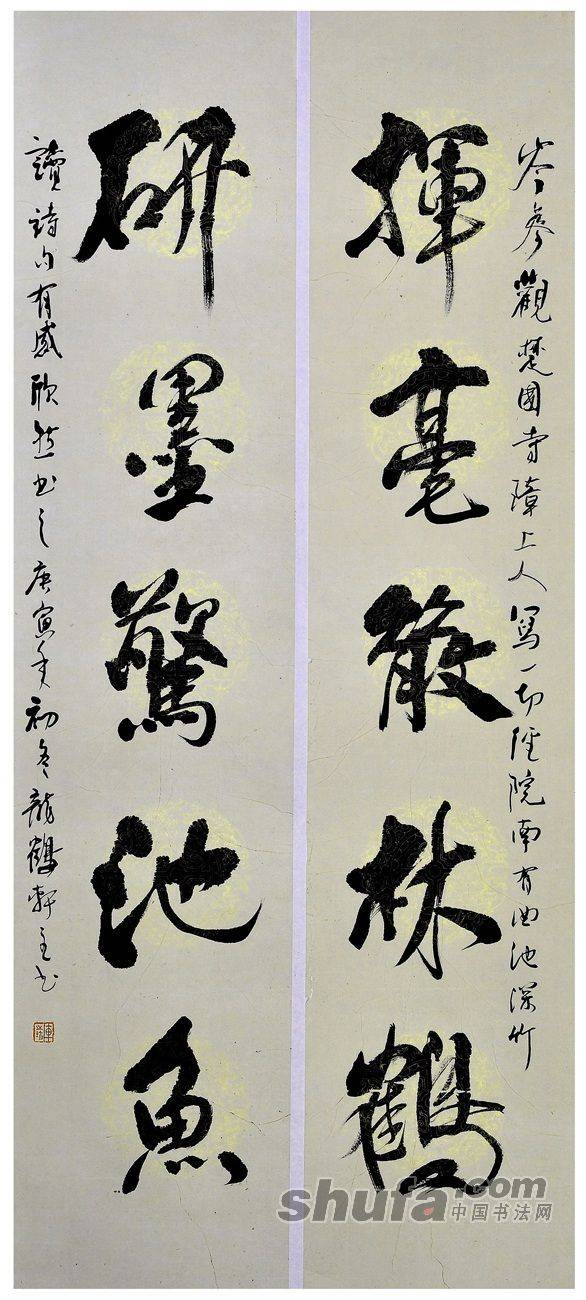 岑參觀楚國寺璋上人寫一切經院南有曲池深竹
揮毫散林鶴
研墨驚池魚
讀詩句有感欣然書之庚寅年初冬龍鶴軒主書
shufa.com
中国书法网